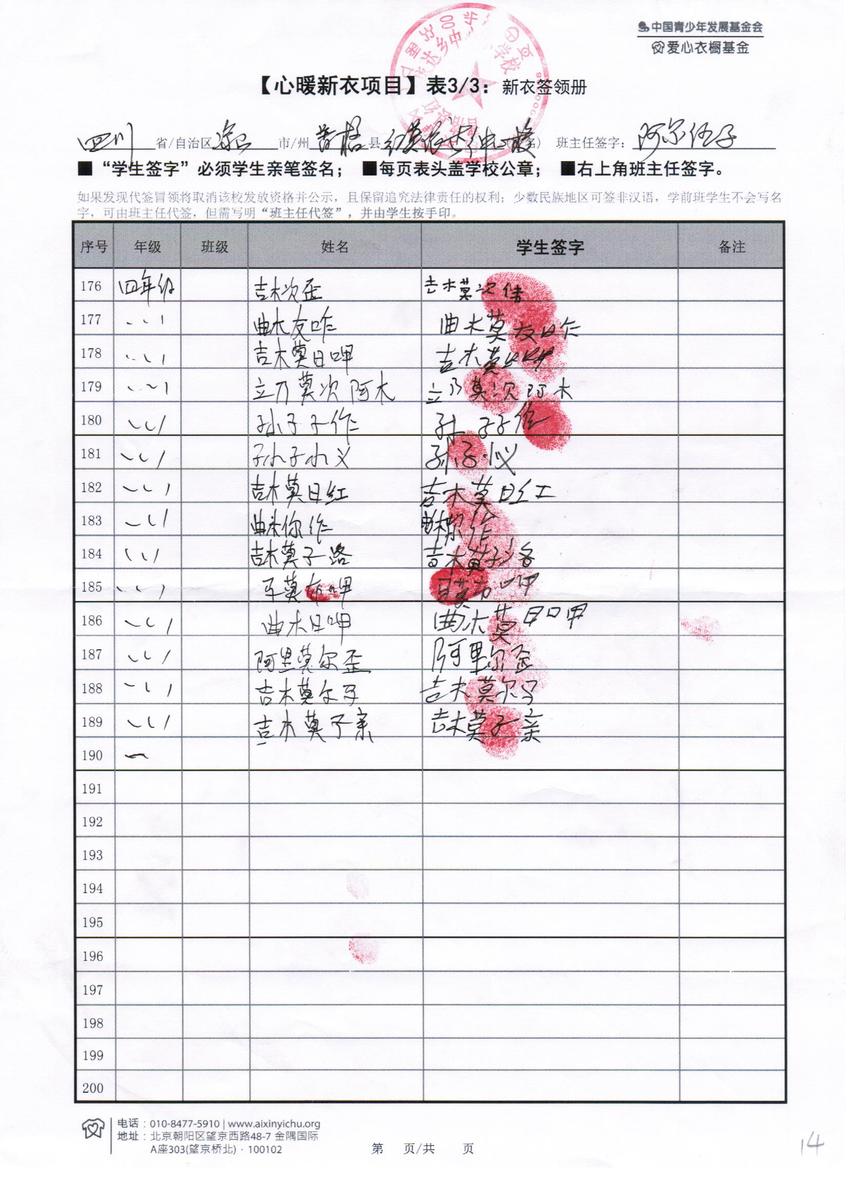 中国青少年发展基金会
爱心衣橱基金
【心暖新衣项目】表3/3：新衣签领册
四川 省/自治区 凉山 市/州 普格 县 中心校 班主任签字：阿尔伍子
■“学生签字”必须学生亲笔签名； ■每页表头盖学校公章； ■右上角班主任签字。
如果发现代签冒领将取消该校发放资格并公示，且保留追究法律责任的权利；少数民族地区可签非汉语，学前班学生不会写名
字，可由班主任代签，但需写明“班主任代签”，并由学生按手印。
序号 年级 班级 姓名 学生签字 备注
176 四年级 吉木次歪 吉木莫次
177 曲木友咋 曲木莫友咋
178 吉木莫日呷 吉木莫
179 立乃莫次阿木 立乃莫次阿木
180 孙子子作 孙子子作
181 孙子小义 孙子小义
182 吉木莫日红 吉木莫日红
183 曲木你作 曲木你作
184 吉木莫子路 吉木莫子路
185 呷 呷
186 曲木日呷 曲木莫日呷
187 阿里莫尔歪 阿里尔歪
188 吉木莫尔子 吉木莫尔子
189 吉木莫子亲 吉木莫子亲
190
191
192
193
194
195
196
197
198
199
200
电话：010-8477-5910 | www.aixinyichu.org
地址：北京朝阳区望京西路48-7 金隅国际
A座303(望京桥北) · 100102
第 页/共 页
14